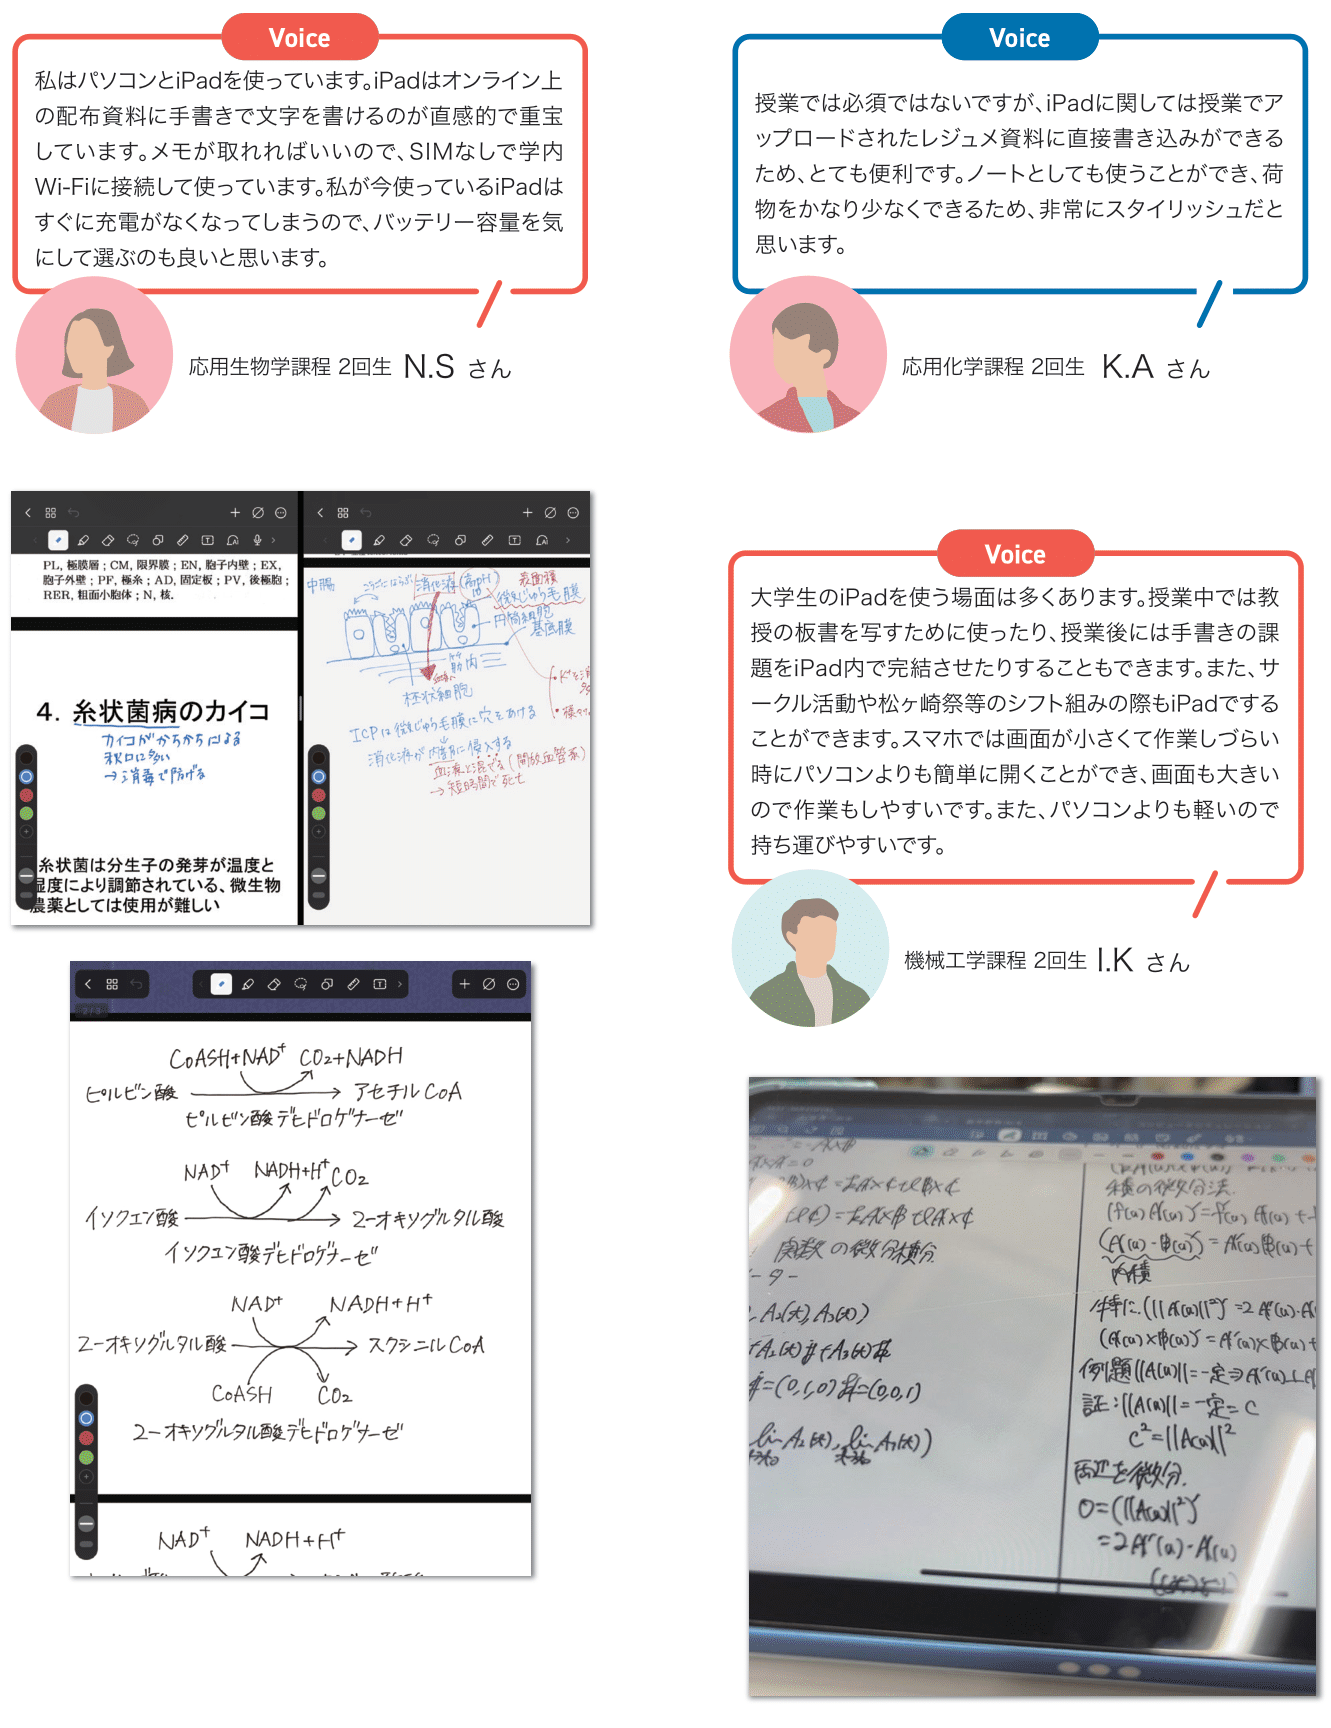 Voice
私はパソコンとiPadを使っています。iPadはオンライン上
の配布資料に手書きで文字を書けるのが直感的で重宝
しています。メモが取れればいいので、SIMなしで学内
Wi-Fiに接続して使っています。私が今使っているiPadは
すぐに充電がなくなってしまうので、バッテリー容量を気
にして選ぶのも良いと思います。
応用生物学課程 2回生 N.S さん
Voice
授業では必須ではないですが、iPadに関しては授業でア
ップロードされたレジュメ資料に直接書き込みができる
ため、とても便利です。ノートとしても使うことができ、荷
物をかなり少なくできるため、非常にスタイリッシュだと
思います。
応用化学課程 2回生 K.A さん
PL, 極膜層 ; CM, 限界膜 ; EN, 胞子内壁 ; EX,
胞子外壁 ; PF, 極糸 ; AD, 固定板 ; PV, 後極胞 ;
RER, 粗面小胞体 ; N, 核.
4. 糸状菌病のカイコ
カイコがかちかちになる
秋口に多い
→消毒で防げる
糸状菌は分生子の発芽が温度と
湿度により調節されている、微生物
農薬としては使用が難しい
中腸
消化液(高pH)
表面積
微じゅう毛膜
円筒細胞
基底膜
筋肉
杯状細胞
ICPは微じゅう毛膜に穴をあける
消化液が体内に侵入する
血液と混ざる(開放血管系)
→短時間で死亡
CoASH+NAD⁺ CO₂+NADH
ピルビン酸 アセチルCoA
ピルビン酸デヒドロゲナーゼ
NAD⁺ NADH+H⁺ CO₂
イソクエン酸 2-オキソグルタル酸
イソクエン酸デヒドロゲナーゼ
NAD⁺ NADH+H⁺
2-オキソグルタル酸 スクシニルCoA
CoASH CO₂
2-オキソグルタル酸デヒドロゲナーゼ
NAD⁺ NADH+H⁺
Voice
大学生のiPadを使う場面は多くあります。授業中では教
授の板書を写すために使ったり、授業後には手書きの課
題をiPad内で完結させたりすることもできます。また、サ
ークル活動や松ヶ崎祭等のシフト組みの際もiPadでする
ことができます。スマホでは画面が小さくて作業しづらい
時にパソコンよりも簡単に開くことができ、画面も大きい
ので作業もしやすいです。また、パソコンよりも軽いので
持ち運びやすいです。
機械工学課程 2回生 I.K さん
関数の微分積分
, A₂(t), A₃(t))
=(0,1,0) k=(0,0,1)
lim A₂(t), lim A₃(t))
積の微分法.
(A(u)・B(u))'
内積
特に.(||A(u)||²)'=2A'(u)・A(u)
例題||A(u)||=一定⇒
証:||A(u)||=一定=C
C²=||A(u)||²
両辺を微分.
0=(||A(u)||²)'
=2A'(u)・A(u)